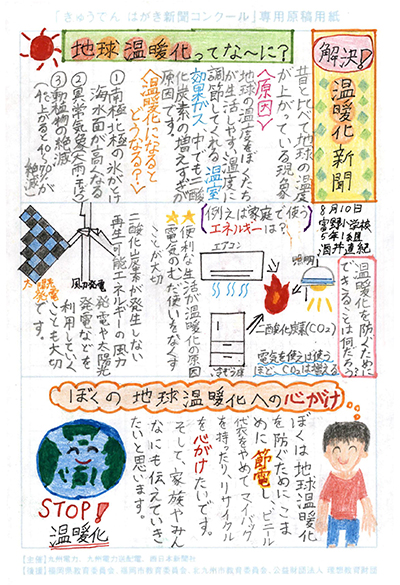 「きゅうてん はがき新聞コンクール」専用原稿用紙
解決!
温暖化新聞
8月10日
小学校
5年1組
地球温暖化ってな〜に?
昔と比べて地球の温度
が上がっている現象
〈原因〉
地球の温度をぼくたち
が生活しやすい温度に
調節してくれる温室
効果ガス 中でも二酸
化炭素の増えすぎが
原因です。
〈温暖化になると
どうなる?〉
①南極北極の氷がとけ
海水面が高くなる
②異常気象
③動植物の絶滅
温暖化を防ぐために
できることは何だろう?
例えば家庭で使う
エネルギーは?
エアコン
照明
二酸化炭素(CO₂)
れいぞう庫
電気を使えば使う
ほど、CO₂は増える
★便利な生活が温暖化の原因
★電気のむだ使いをなくす
ことが大切
二酸化炭素が発生しない
再生可能エネルギーの風力
発電や太陽光
発電などを
利用していく
ことも大切
です。
風力発電
太陽光発電
ぼくの地球温暖化への心がけ
ぼくは地球温暖化
を防ぐためにこま
めに節電し、ビニール
代をやめて マイバッグ
を持ったり、リサイクル
を心がけたいです。
そして、家族やみん
なにも伝えていき
たいと思います。
STOP!
温暖化
【主催】九州電力、九州電力送配電、西日本新聞社
【後援】福岡県教育委員会、福岡市教育委員会、北九州市教育委員会、公益財団法人 理想教育財団